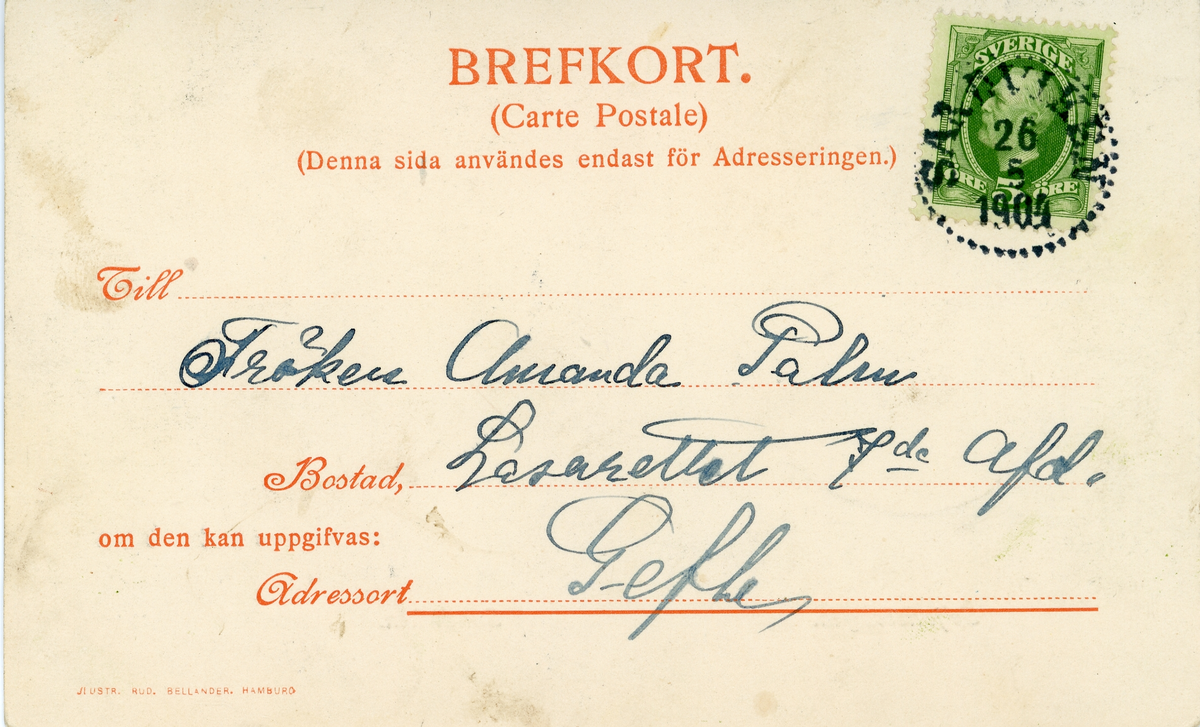 BREFKORT.
(Carte Postale)
(Denna sida användes endast för Adresseringen.)
SVERIGE
SANDVIKEN
26
5
1904
ÖRE 5 ÖRE
Till
Fröken Amanda Palm
Bostad, Lasarettet 7de Afd.
om den kan uppgifvas:
Adressort Gefle
JLLUSTR. RUD. BELLANDER, HAMBURG